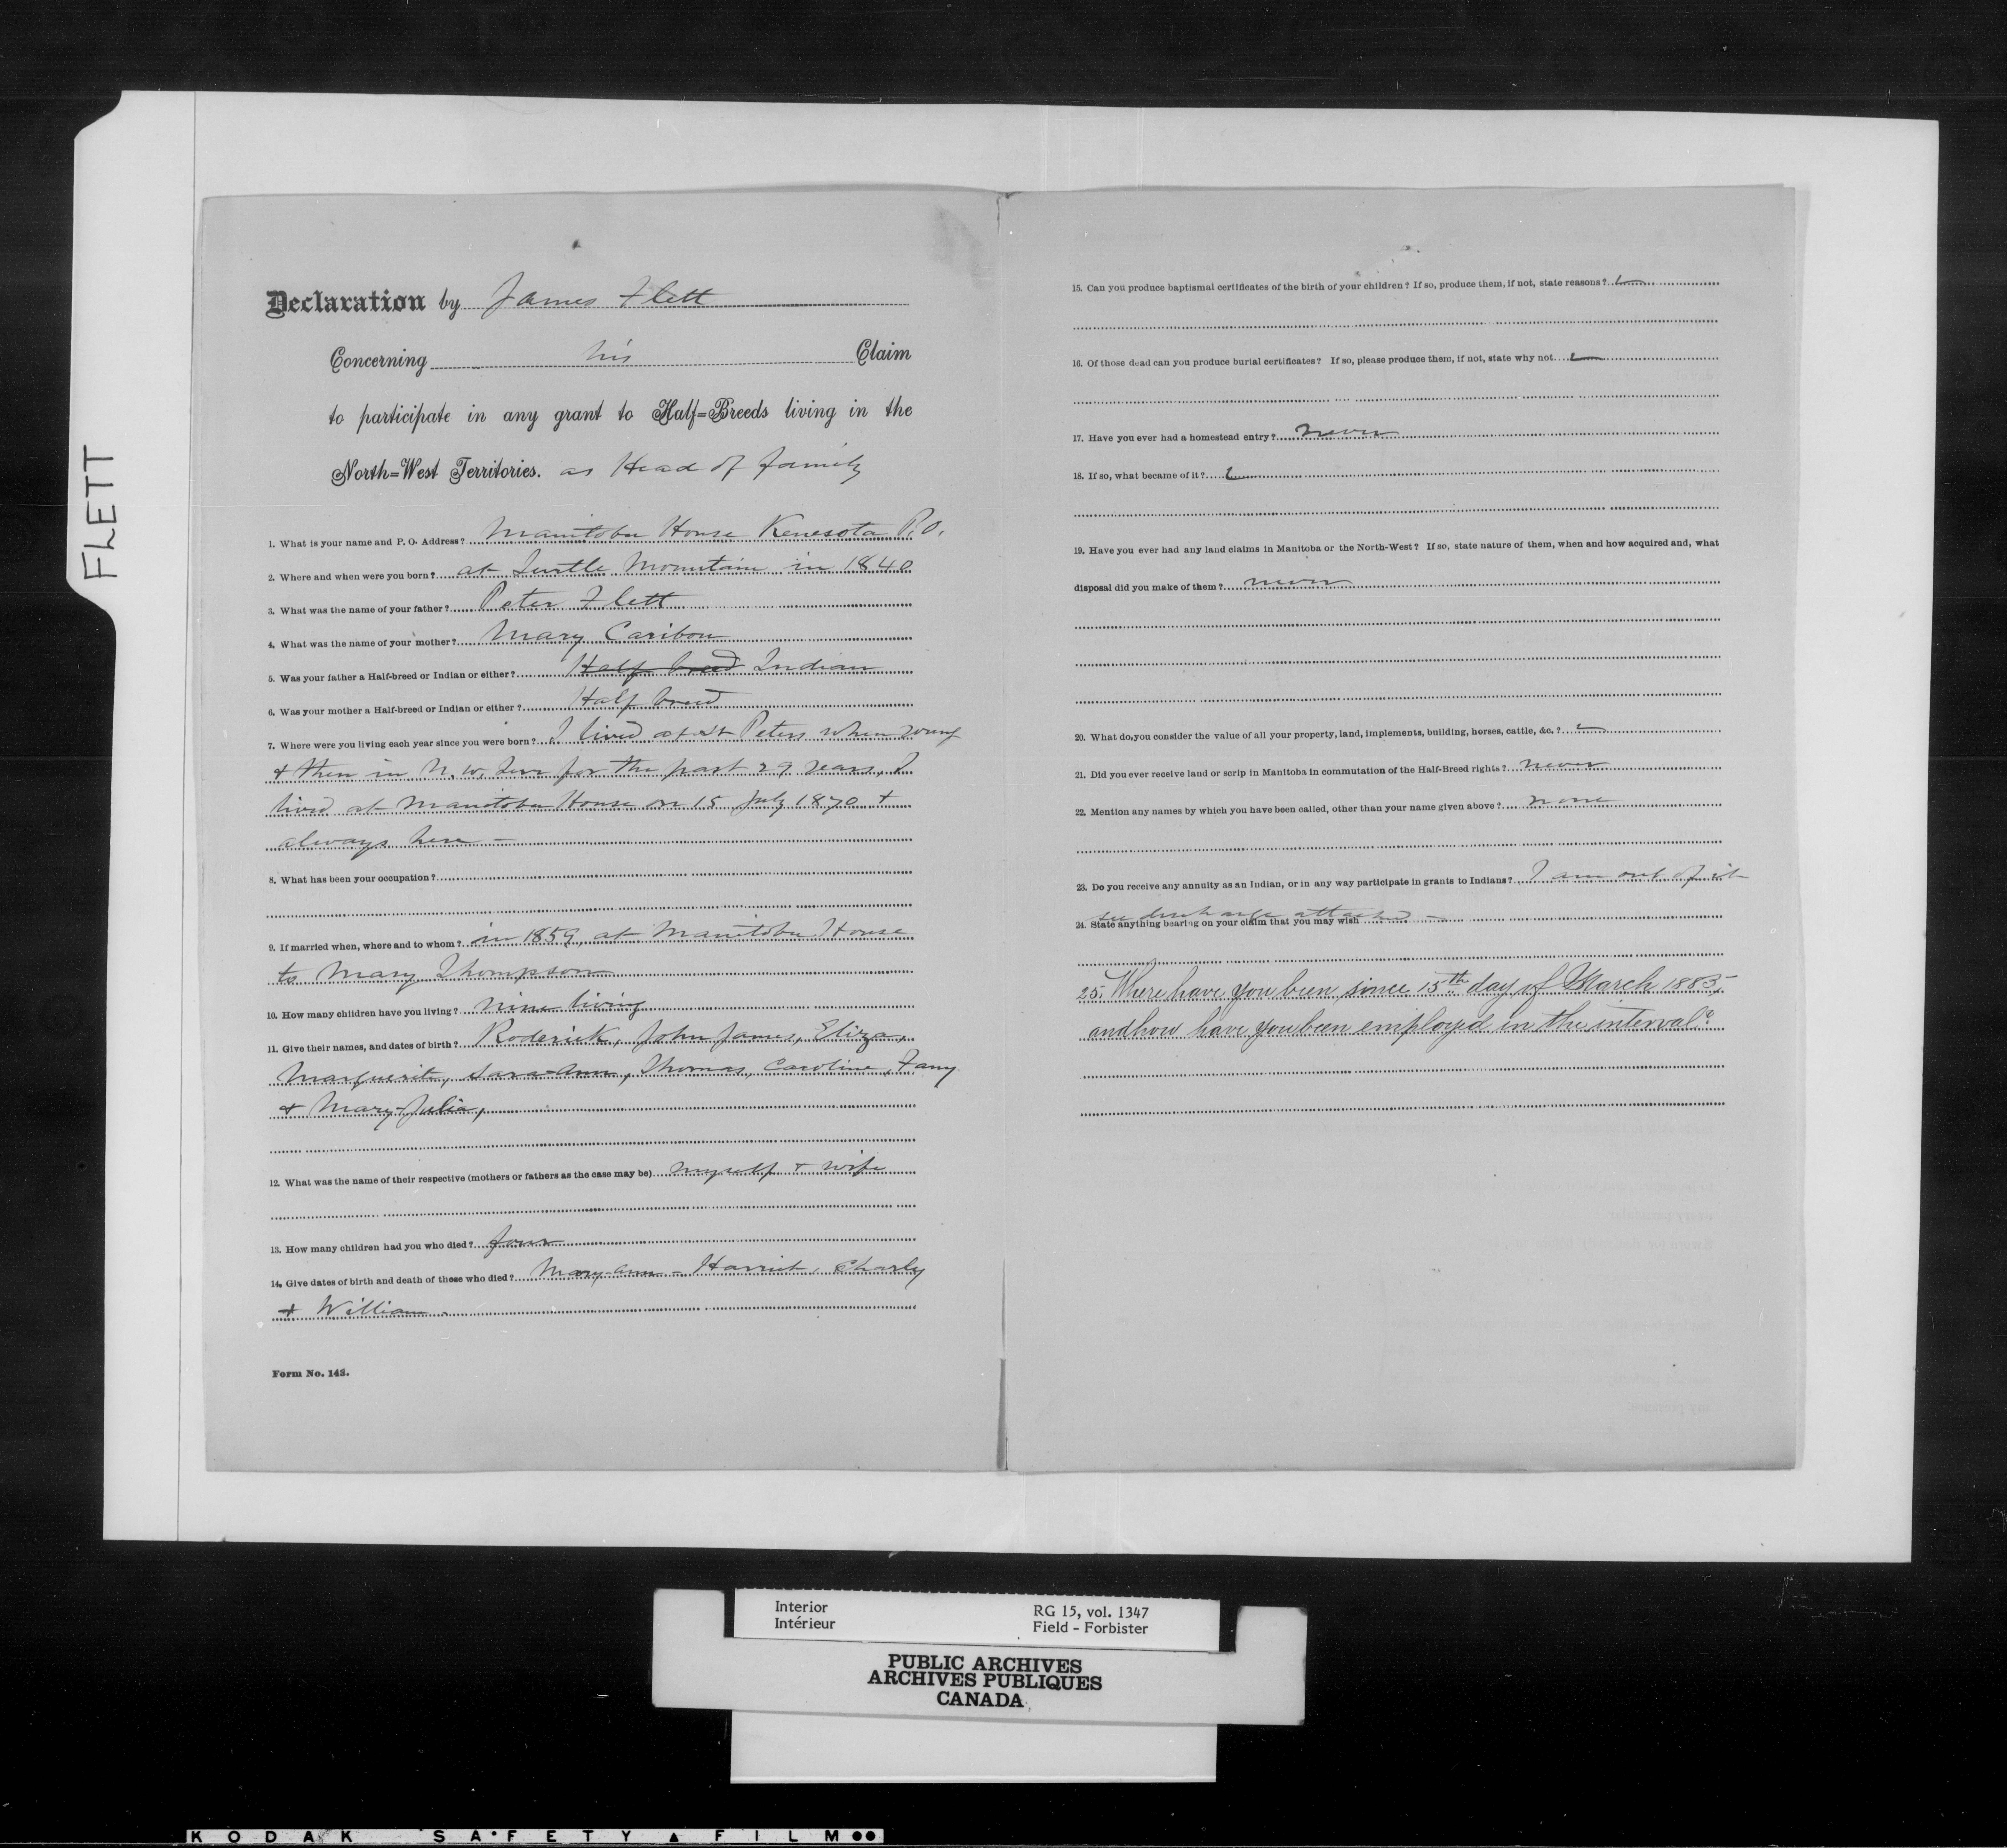 FLETT
Declaration by James Flett
Concerning his Claim
to participate in any grant to Half=Breeds living in the
North=West Territories. as Head of family
1. What is your name and P. O. Address? Manitoba House Kenesota P.O.
2. Where and when were you born? at Turtle Mountain in 1840
3. What was the name of your father? Peter Flett
4. What was the name of your mother? Mary Caribou
5. Was your father a Half-breed or Indian or either? Half breed Indian
6. Was your mother a Half-breed or Indian or either? Half breed
7. Where were you living each year since you were born? I lived at St Peters when young
+ then in N. W. Terr for the past 29 years, I
lived at Manitoba House on 15 July 1870 +
always here —
8. What has been your occupation?
9. If married when, where and to whom? in 1859, at Manitoba House
to Mary Thompson
10. How many children have you living? nine living
11. Give their names, and dates of birth? Roderick, John James, Eliza,
Marguerite, Sara-Ann, Thomas, Caroline, Fany
+ Mary-Julia,
12. What was the name of their respective (mothers or fathers as the case may be) myself + wife
13. How many children had you who died? four
14. Give dates of birth and death of those who died? Mary-ann - Harriet, Charly
+ William.
Form No. 143.
15. Can you produce baptismal certificates of the birth of your children? If so, produce them, if not, state reasons?
16. Of those dead can you produce burial certificates? If so, please produce them, if not, state why not
17. Have you ever had a homestead entry? never
18. If so, what became of it?
19. Have you ever had any land claims in Manitoba or the North-West? If so, state nature of them, when and how acquired and, what
disposal did you make of them? never
20. What do you consider the value of all your property, land, implements, building, horses, cattle, &c.?
21. Did you ever receive land or scrip in Manitoba in commutation of the Half-Breed rights? never
22. Mention any names by which you have been called, other than your name given above? none
23. Do you receive any annuity as an Indian, or in any way participate in grants to Indians? I am out of it
see discharge attached —
24. State anything bearing on your claim that you may wish
25. Where have you been since 15th day of March 1885,
and how have you been employed in the interval?
Interior
Intérieur
RG 15, vol. 1347
Field - Forbister
PUBLIC ARCHIVES
ARCHIVES PUBLIQUES
CANADA
KODAK SAFETY ▲ FILM ●●